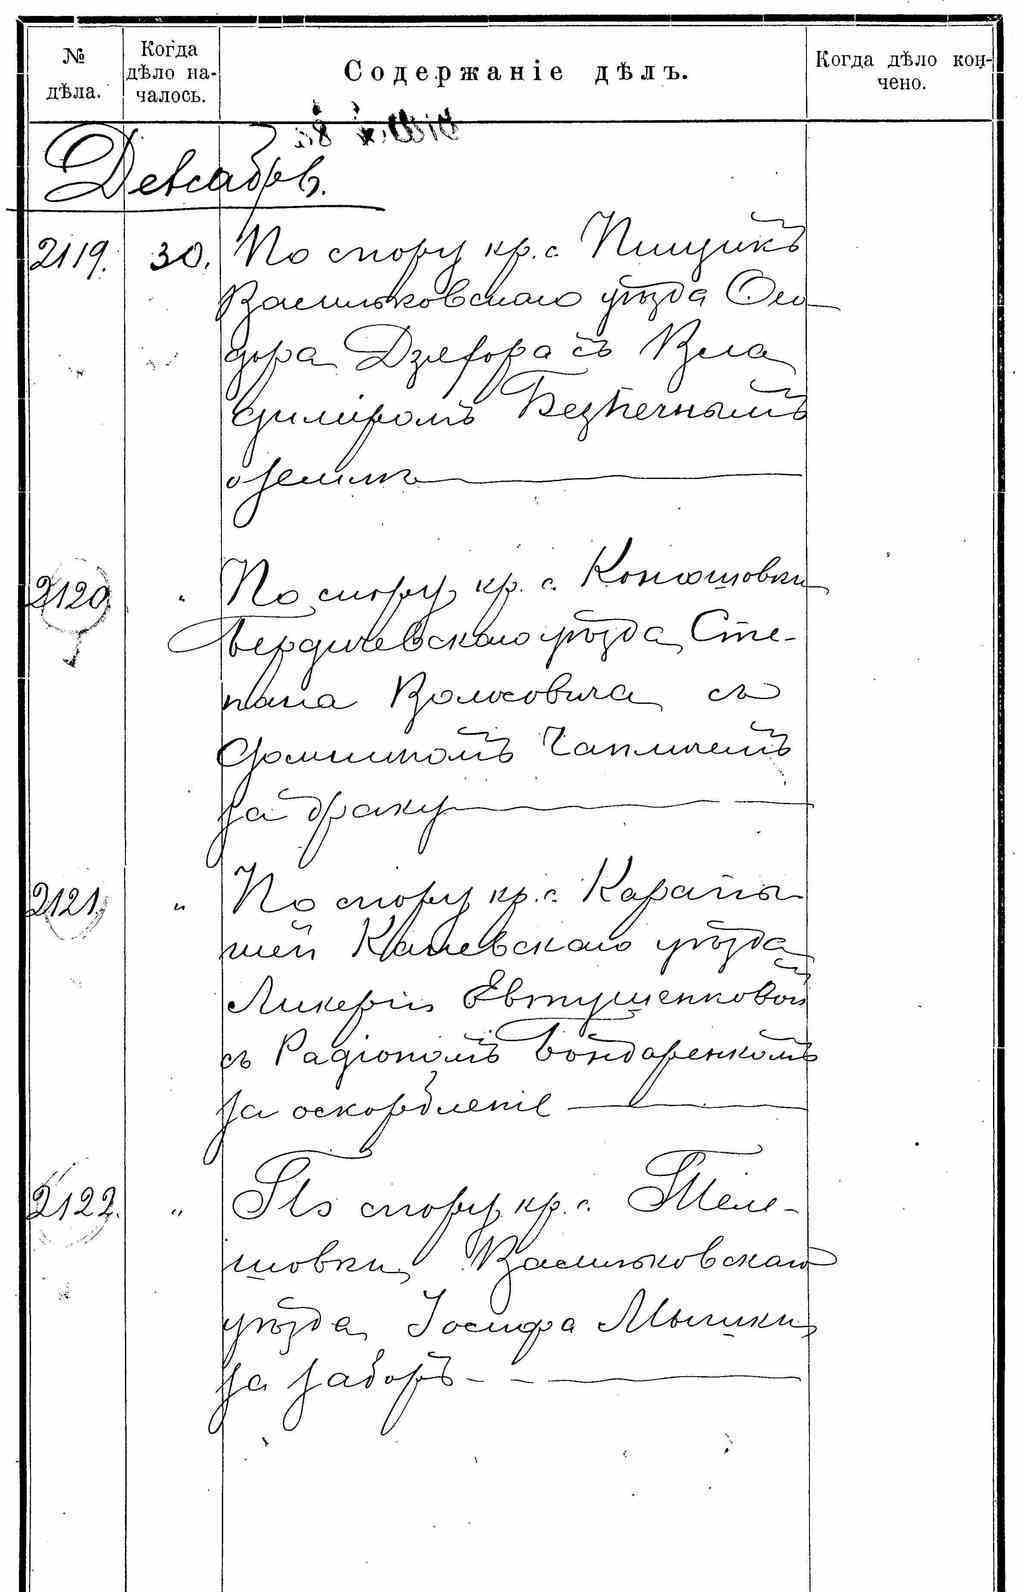 № дѣла.
Когда дѣло на-
чалось.
Содержаніе дѣлъ.
Когда дѣло кон-
чено.
Декабрь.
2119. 30. По спору кр. с. Пищикъ
Васильковскаго уѣзда Ѳео
дора с Вла
диміромъ Безпечнымъ
о землѣ
2120 " По спору кр. с. Конюшовки
Бердичевскаго уѣзда Сте-
пана Волосовича съ
Доминикомъ Чапличемъ
за драку
2121. " По спору кр. с. Карапы
шей Каневскаго уѣзда
Ликеріи Евтушенковой
съ Радіономъ Бондаренкомъ
за оскорбленіе
2122. " По спору кр. с. Теле-
шовки Васильковскаго
уѣзда Іосифа Мышки
за заборъ